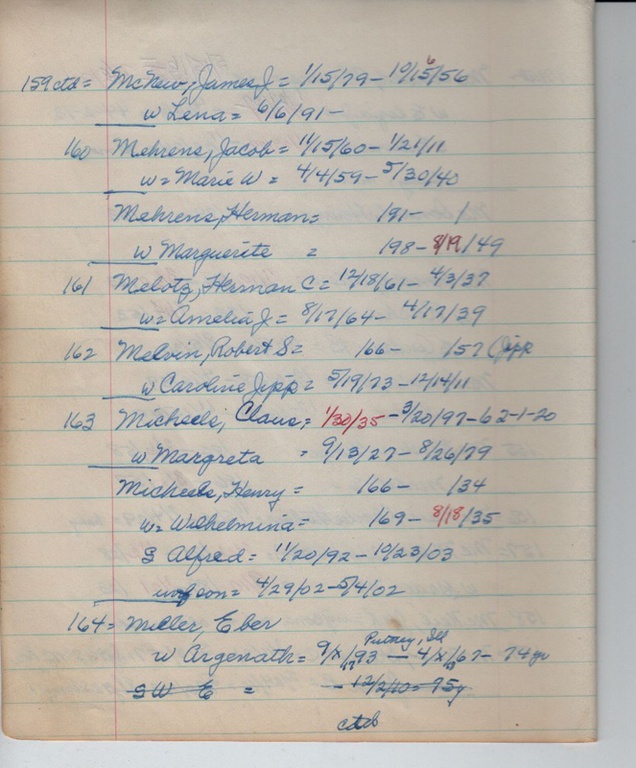 159ctd= McNew, James J = 1/15/79 - 10/15/56
w Lena = 6/6/91 -
160 Mehrens, Jacob = 11/15/60 - 1/21/11
w = Marie W = 4/4/59 - 5/30/40
Mehrens, Herman = 191- /
w Marguerite = 198 - 8/19/49
161 Melotz, Herman C = 12/18/61 - 4/3/37
w = Amelia J = 8/17/64 - 4/17/39
162 Melvin, Robert S = 166 - 157 (Jipp
w Caroline Jipp = 5/19/73 - 12/14/11
163 Micheels, Claus, = 1/30/35 - 3/20/97 - 62-1-20
w Margreta = 9/13/27 - 8/26/79
Micheels, Henry = 166 - 134
w = Wilhelmina = 169 - 8/18/35
S Alfred = 11/20/92 - 10/23/03
son = 4/29/02 - 5/4/02
164 = Miller, Eber
Putney, Ill
w Argenath = 9/x/93 - 4/x/67 - 74 yr
S W E = - 12/2/10 = 75 y.
ctd